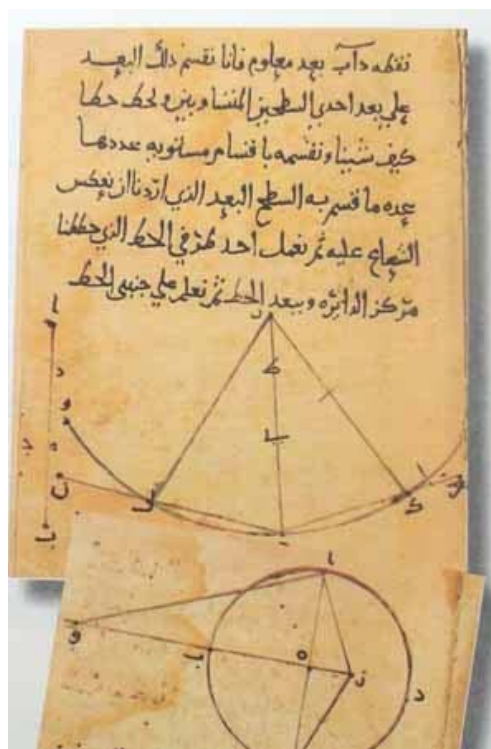 نقطه داب بعد معلوم فانا نقسم ذلك البعد
علي بعد احدي السطحين المتساويين ولخط خطا
كيف شينا ونقسمه باقسام مستويه عددها
عده ما قسم به السطح البعد الذي اردنا ان نعكس
الشعاع عليه ثم نعمل احد طرفي الخط الذي خططنا
مركز الدائره وببعد الخط ثم نعلم علي جنبي الخط
ا
د
و
ه
ح
ب
ط
ل
ك
ا
و
ب
ه
ز
د